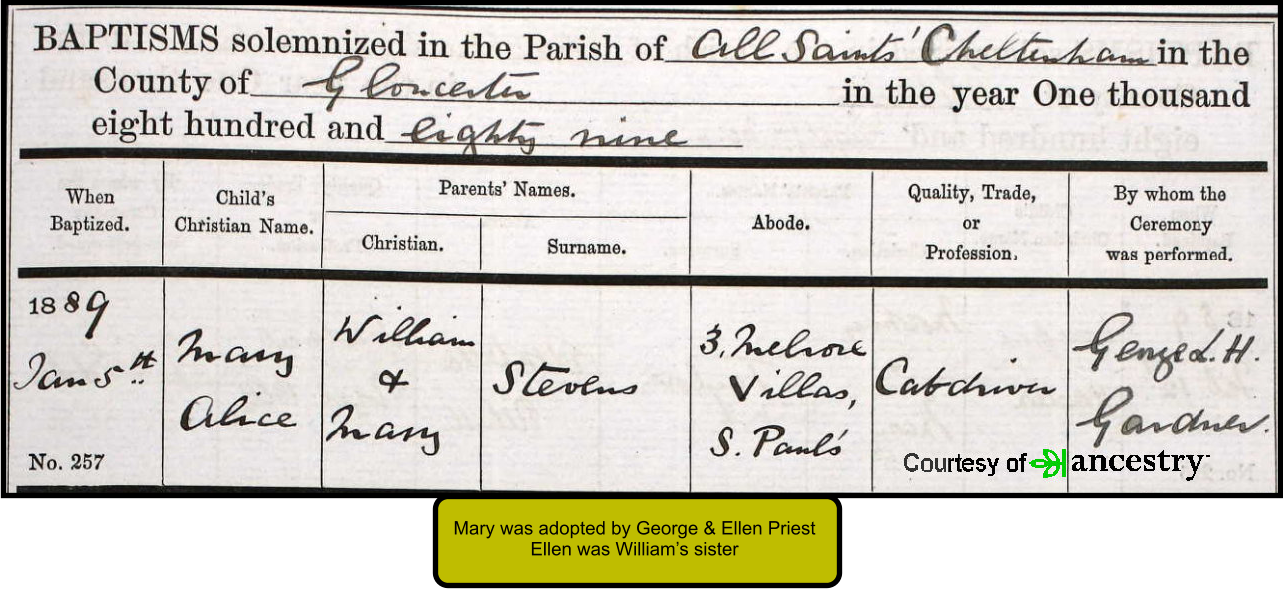 BAPTISMS solemnized in the Parish of All Saints' Cheltenham in the
County of Gloucester in the year One thousand
eight hundred and eighty nine
When
Baptized.
Child's
Christian Name.
Parents' Names.
Christian.
Surname.
Abode.
Quality, Trade,
or
Profession.
By whom the
Ceremony
was performed.
1889
Jan 5th
No. 257
Mary
Alice
William
&
Mary
Stevens
3, Melrose
Villas,
S. Paul's
Cabdriver
George L. H.
Gardner.
Courtesy of ancestry
Mary was adopted by George & Ellen Priest
Ellen was William's sister